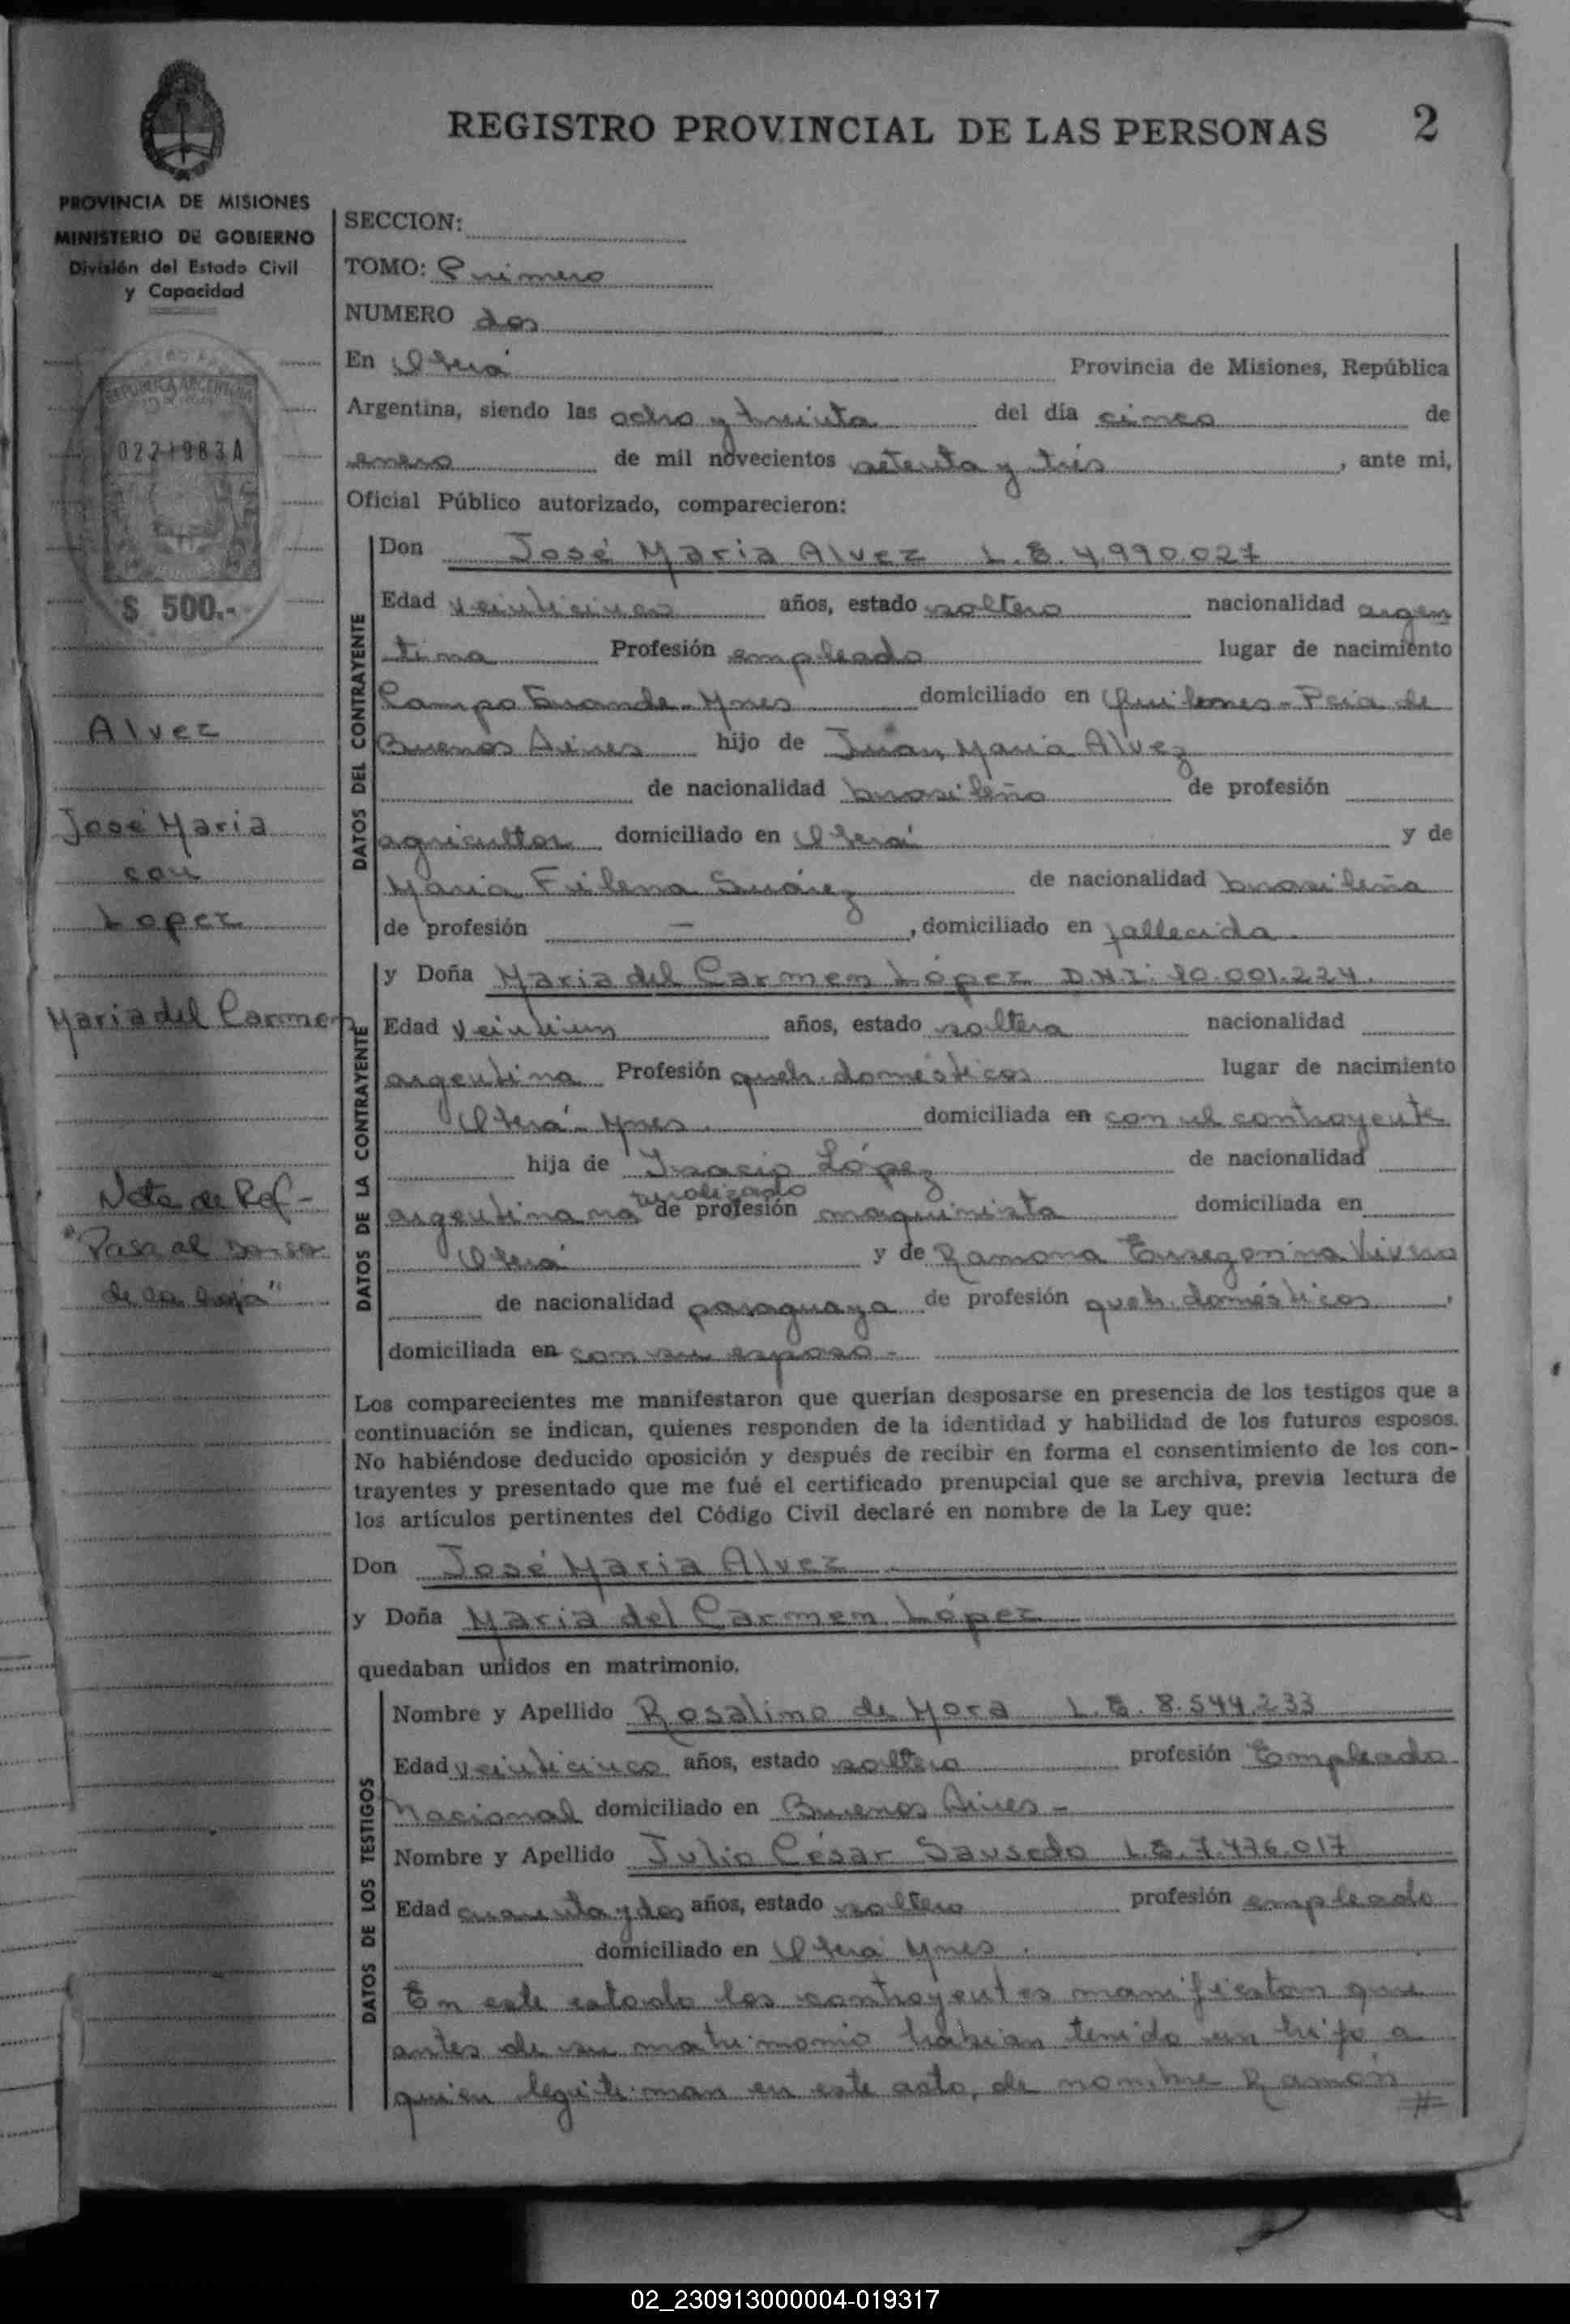 REGISTRO PROVINCIAL DE LAS PERSONAS 2
PROVINCIA DE MISIONES
MINISTERIO DE GOBIERNO
División del Estado Civil
y Capacidad
REPUBLICA ARGENTINA
0221983A
$ 500.-
Alvez
José Maria
con
Lopez
Maria del Carmen
Nota de Ref-
"Pasa al dorso
de la hoja"
SECCION:
TOMO: Primero
NUMERO dos
En Oberá Provincia de Misiones, República
Argentina, siendo las ocho y treinta del día cinco de
enero de mil novecientos setenta y trés, ante mi,
Oficial Público autorizado, comparecieron:
DATOS DEL CONTRAYENTE
Don José Maria Alvez L.E. 4.990.027
Edad veinticinco años, estado soltero nacionalidad argen
tina Profesión empleado lugar de nacimiento
Campo Grande-Mnes domiciliado en Quilmes-Pcia de
Buenos Aires hijo de Juan Maria Alvez
de nacionalidad brasileño de profesión
agricultor domiciliado en Oberá y de
Maria Suárez de nacionalidad brasileña
de profesión —, domiciliado en fallecida.
DATOS DE LA CONTRAYENTE
y Doña Maria del Carmen López D.N.I. 10.001.224.
Edad veintiun años, estado soltera nacionalidad
argentina Profesión queh. domésticos lugar de nacimiento
Oberá-Mnes. domiciliada en con el contrayente
hija de López de nacionalidad
argentina naturalizado de profesión maquinista domiciliada en
Oberá y de Ramona
de nacionalidad paraguaya de profesión queh. domésticos,
domiciliada en con su esposo-
Los comparecientes me manifestaron que querían desposarse en presencia de los testigos que a
continuación se indican, quienes responden de la identidad y habilidad de los futuros esposos.
No habiéndose deducido oposición y después de recibir en forma el consentimiento de los con-
trayentes y presentado que me fué el certificado prenupcial que se archiva, previa lectura de
los artículos pertinentes del Código Civil declaré en nombre de la Ley que:
Don José Maria Alvez
y Doña Maria del Carmen López
quedaban unidos en matrimonio.
DATOS DE LOS TESTIGOS
Nombre y Apellido Rosalino de Mora L.E. 8.544.233
Edad veinticinco años, estado soltero profesión Empleado
Nacional domiciliado en Buenos Aires-
Nombre y Apellido Julio César Sausedo L.E. 7.476.017
Edad cuarenta y dos años, estado soltero profesión empleado
domiciliado en Oberá Mnes.
En este estado los contrayentes manifiestan que
antes de su matrimonio habian tenido un hijo a
quien legitiman en este acto, de nombre Ramón
#
02_230913000004-019317